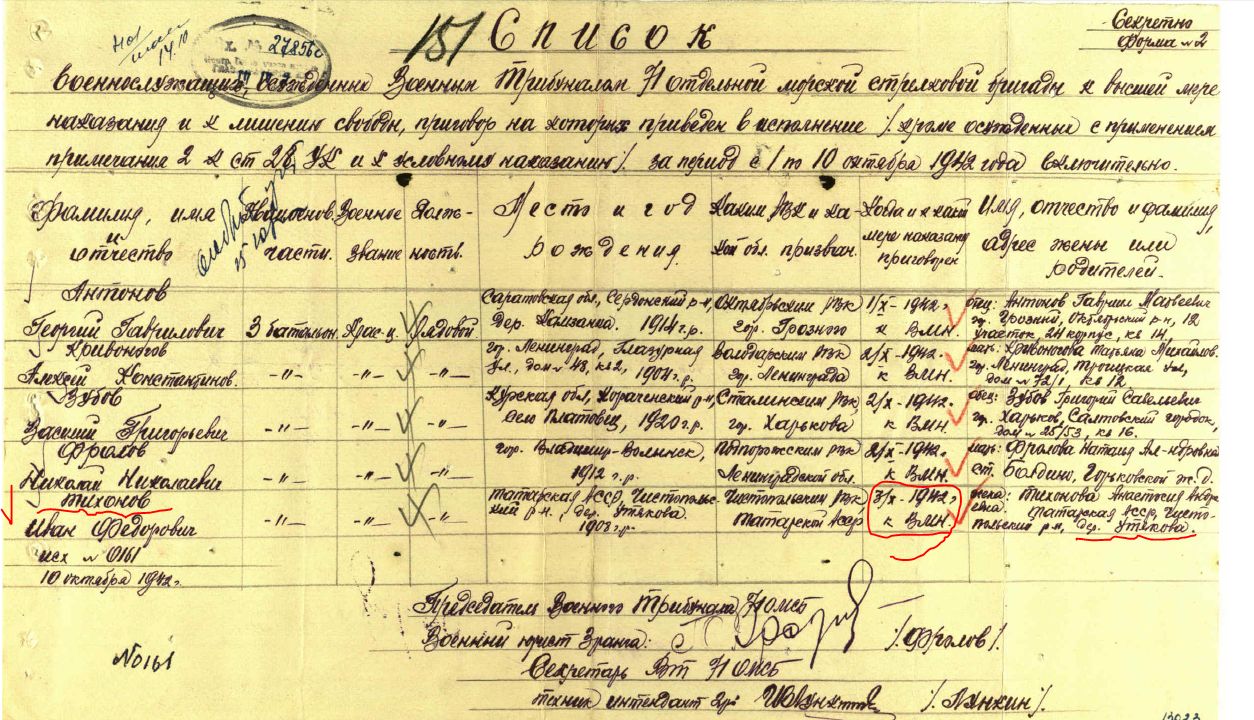 151 Список
Секретно
Форма № 2
14.10
27856с
Военнослужащих, осужденных Военным Трибуналом 71 отдельной морской стрелковой бригады к высшей мере
наказания и к лишению свободы, приговор на которых приведен в исполнение /. кроме осужденных с применением
примечания 2 к ст 28 УК и к условному наказанию/. за период с 1 по 10 октября 1942 года включительно.
Фамилия, имя и отчество
части.
Военное звание
Долж-ность.
Место и год рождения.
Каким РВК и ка-кой обл. призван.
Когда и к какой мере наказания приговорен
Имя, отчество и фамилия, адрес жены или родителей.
Антонов Георгий Гаврилович
3 батальон.
Крас-ц.
Рядовой.
Саратовская обл., р-н, дер. 1914 г.р.
Октябрьским РВК гор. Грозного
1/X-1942г. к ВМН.
отец: Антонов Гавриил Матвеевич гор. Грозный, Октябрьский р-н, 12 участок, 24 корпус, кв 14,
Кривоногов Алексей Константинов.
-"-
-"-
-"-
гор. Ленинград, Глазурная ул., дом № 48, кв 2, 1904 г.р.
Володарским РВК гор. Ленинграда
2/X-1942г. к ВМН.
мать: Кривоногова Татьяна Михайлов. гор. Ленинград, Троицкая ул, дом № 72/1, кв 12
Зубов Василий Григорьевич
-"-
-"-
-"-
Курская обл, р-н, село Платовец, 1920 г.р.
Сталинским РВК, гор. Харькова
2/X-1942г. к ВМН
отец: Зубов Григорий Савельевич гр. Харьков, Салтовский городок, дом № 25/53, кв 16.
Фролов Николай Николаевич
-"-
-"-
-"-
гор. Владимир-Волынск, 1912 г.р.
РВК Ленинградской обл.
2/X-1942г. к ВМН.
мать: Фролова Наталия Ал-ндровна ст. Болдино, Горьковской ж.д.
Тихонов Иван Федорович
-"-
-"-
-"-
Татарская АССР, Чистопольс-кий р-н, дер. Утякова. 1908 г.р.
Чистопольским РВК, Татарской АССР
3/X-1942г. к ВМН.
жена: Тихонова Анастасия Татарская АССР, Чисто-польский р-н, дер. Утякова.
исх № 0161
10 октября 1942г.
Председатель Военного Трибунала 71 ОМСБ
Военный юрист 3 ранга: /. Фролов/.
Секретарь ВТ 71 ОМСБ
техник интендант /. Лункин/.
№0161
13023